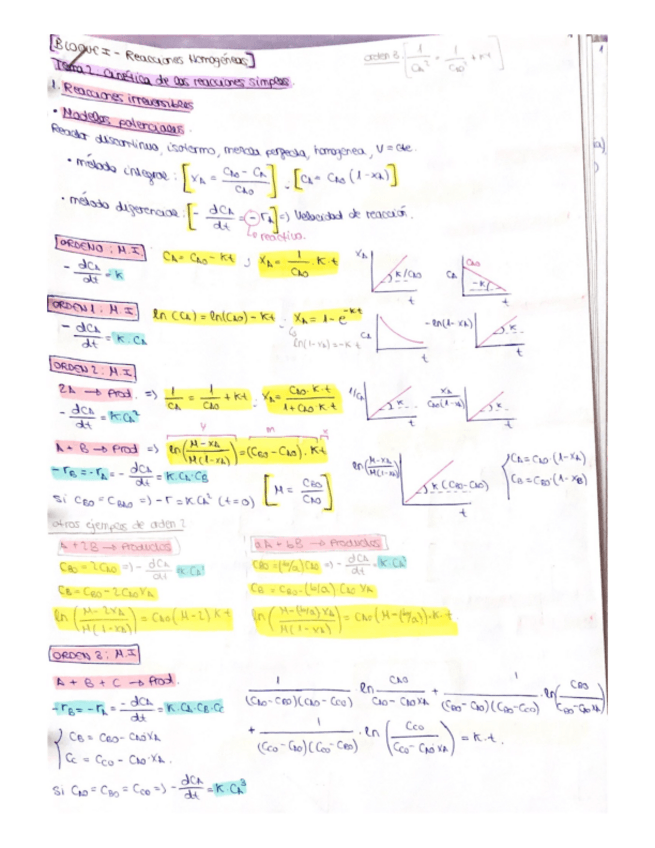 BLOQUE I - Reacciones Homogéneas
orden 3 [1/CA² = 1/CA0² + Kt]
Tema 2. Cinética de las reacciones simples
1. Reacciones irreversibles
• Modelos potenciales.
Reactor discontinuo, isotermo, mezcla perfecta, homogénea, V = cte.
• método integral: [XA = (CA0 - CA)/CA0]; [CA = CA0 (1-XA)]
• método diferencial: [-dCA/dt = -rA] => Velocidad de reacción.
↳ reactivo.
ORDEN 0: M.I
CA = CA0 - Kt ; XA = 1/CA0 · K·t
XA K/CA0 t
CA CA0 -K t
-dCA/dt = K
ORDEN 1: M.I
ln(CA) = ln(CA0) - Kt ; XA = 1 - e^-Kt
ln(1-XA) = -Kt
CA t
-ln(1-XA) K t
-dCA/dt = K·CA
ORDEN 2: M.I
2A → Prod. => 1/CA = 1/CA0 + Kt ; XA = CA0·K·t/(1 + CA0·K·t)
1/CA K t
XA/CA0(1-XA) K t
-dCA/dt = K·CA²
A + B → Prod => ln((M-XA)/M(1-XA)) = (CB0 - CA0)·Kt
y m x
-rB = -rA = -dCA/dt = K·CA·CB
ln((M-XA)/M(1-XA)) K(CB0-CA0) t
{CA = CA0·(1-XA)
CB = CB0·(1-XB)
Si CB0 = CA0 => -r = KCA² (t=0) [M = CB0/CA0]
otros ejemplos de orden 2
A + 2B → Productos
CB0 = 2CA0 => -dCA/dt = K·CA²
CB = CB0 - 2CA0XA
ln((M-2XA)/M(1-XA)) = CA0(M-2)Kt
aA + bB → Productos
CB0 = (b/a)CA0 => -dCA/dt = K·CA²
CB = CB0 - (b/a)CA0XA
ln((M-(b/a)XA)/M(1-XA)) = CA0(M-(b/a))·K·t
ORDEN 3: M.I
A + B + C → Prod.
-rB = -rA = -dCA/dt = K·CA·CB·CC
{CB = CB0 - CA0XA
CC = CC0 - CA0·XA.
1/(CA0-CB0)(CA0-CC0) · ln CA0/(CA0-CA0XA) + 1/(CB0-CA0)(CB0-CC0) · ln(CB0/(CB0-CA0XA)
+ 1/(CC0-CA0)(CC0-CB0) · ln(CC0/(CC0-CA0XA)) = K·t.
Si CA0 = CB0 = CC0 => -dCA/dt = K·CA³